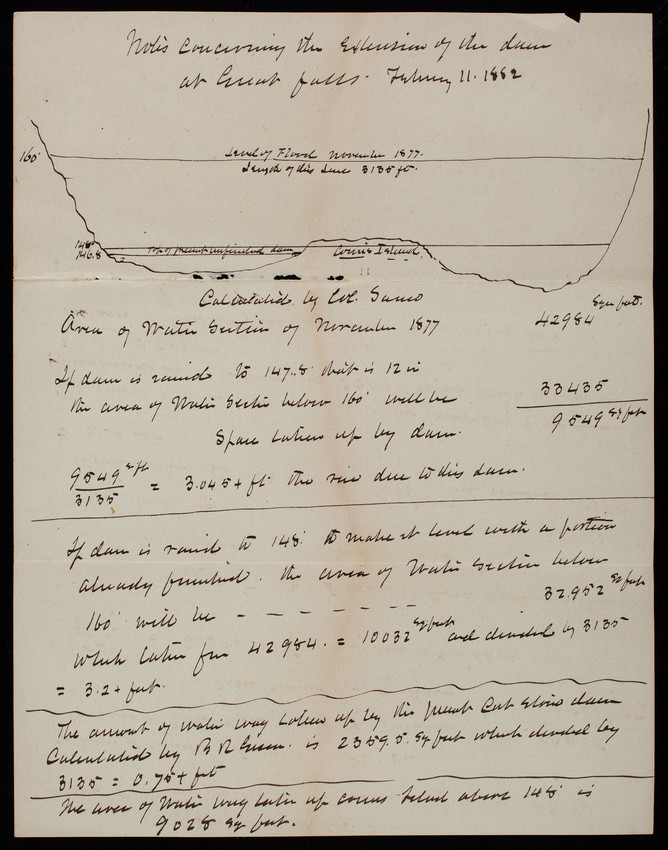 Notes concerning the Extension of the dam
at Great falls. February 11. 1882
160'
Level of Flood November 1877.
Length of this Line 3135 ft.
148'
146.8
Top of present unfinished dam
Conns Island
Calculated by Col. Samo
Sqr feet.
Area of Water Section of November 1877 42984
If dam is raised to 147.8 that is 12 in
the area of Water Section below 160' will be 33435
Space taken up by dam. 9549 sq feet
9549 sq ft / 3135 = 3.045+ ft the rise due to this dam.
If dam is raised to 148' to make it level with a portion
already finished. the area of Water Section below
160' will be - - - - - - - 32.952 sq feet
Which taken from 42984. = 10032 sq feet and divided by 3135
= 3.2+ feet.
The amount of water way taken up by the present Cut Stone dam
Calculated by B R is 2359.5 sq feet which divided by
3135 = 0.75+ ft
The area of Water way taken up Conns Island above 148' is
9028 sq feet.